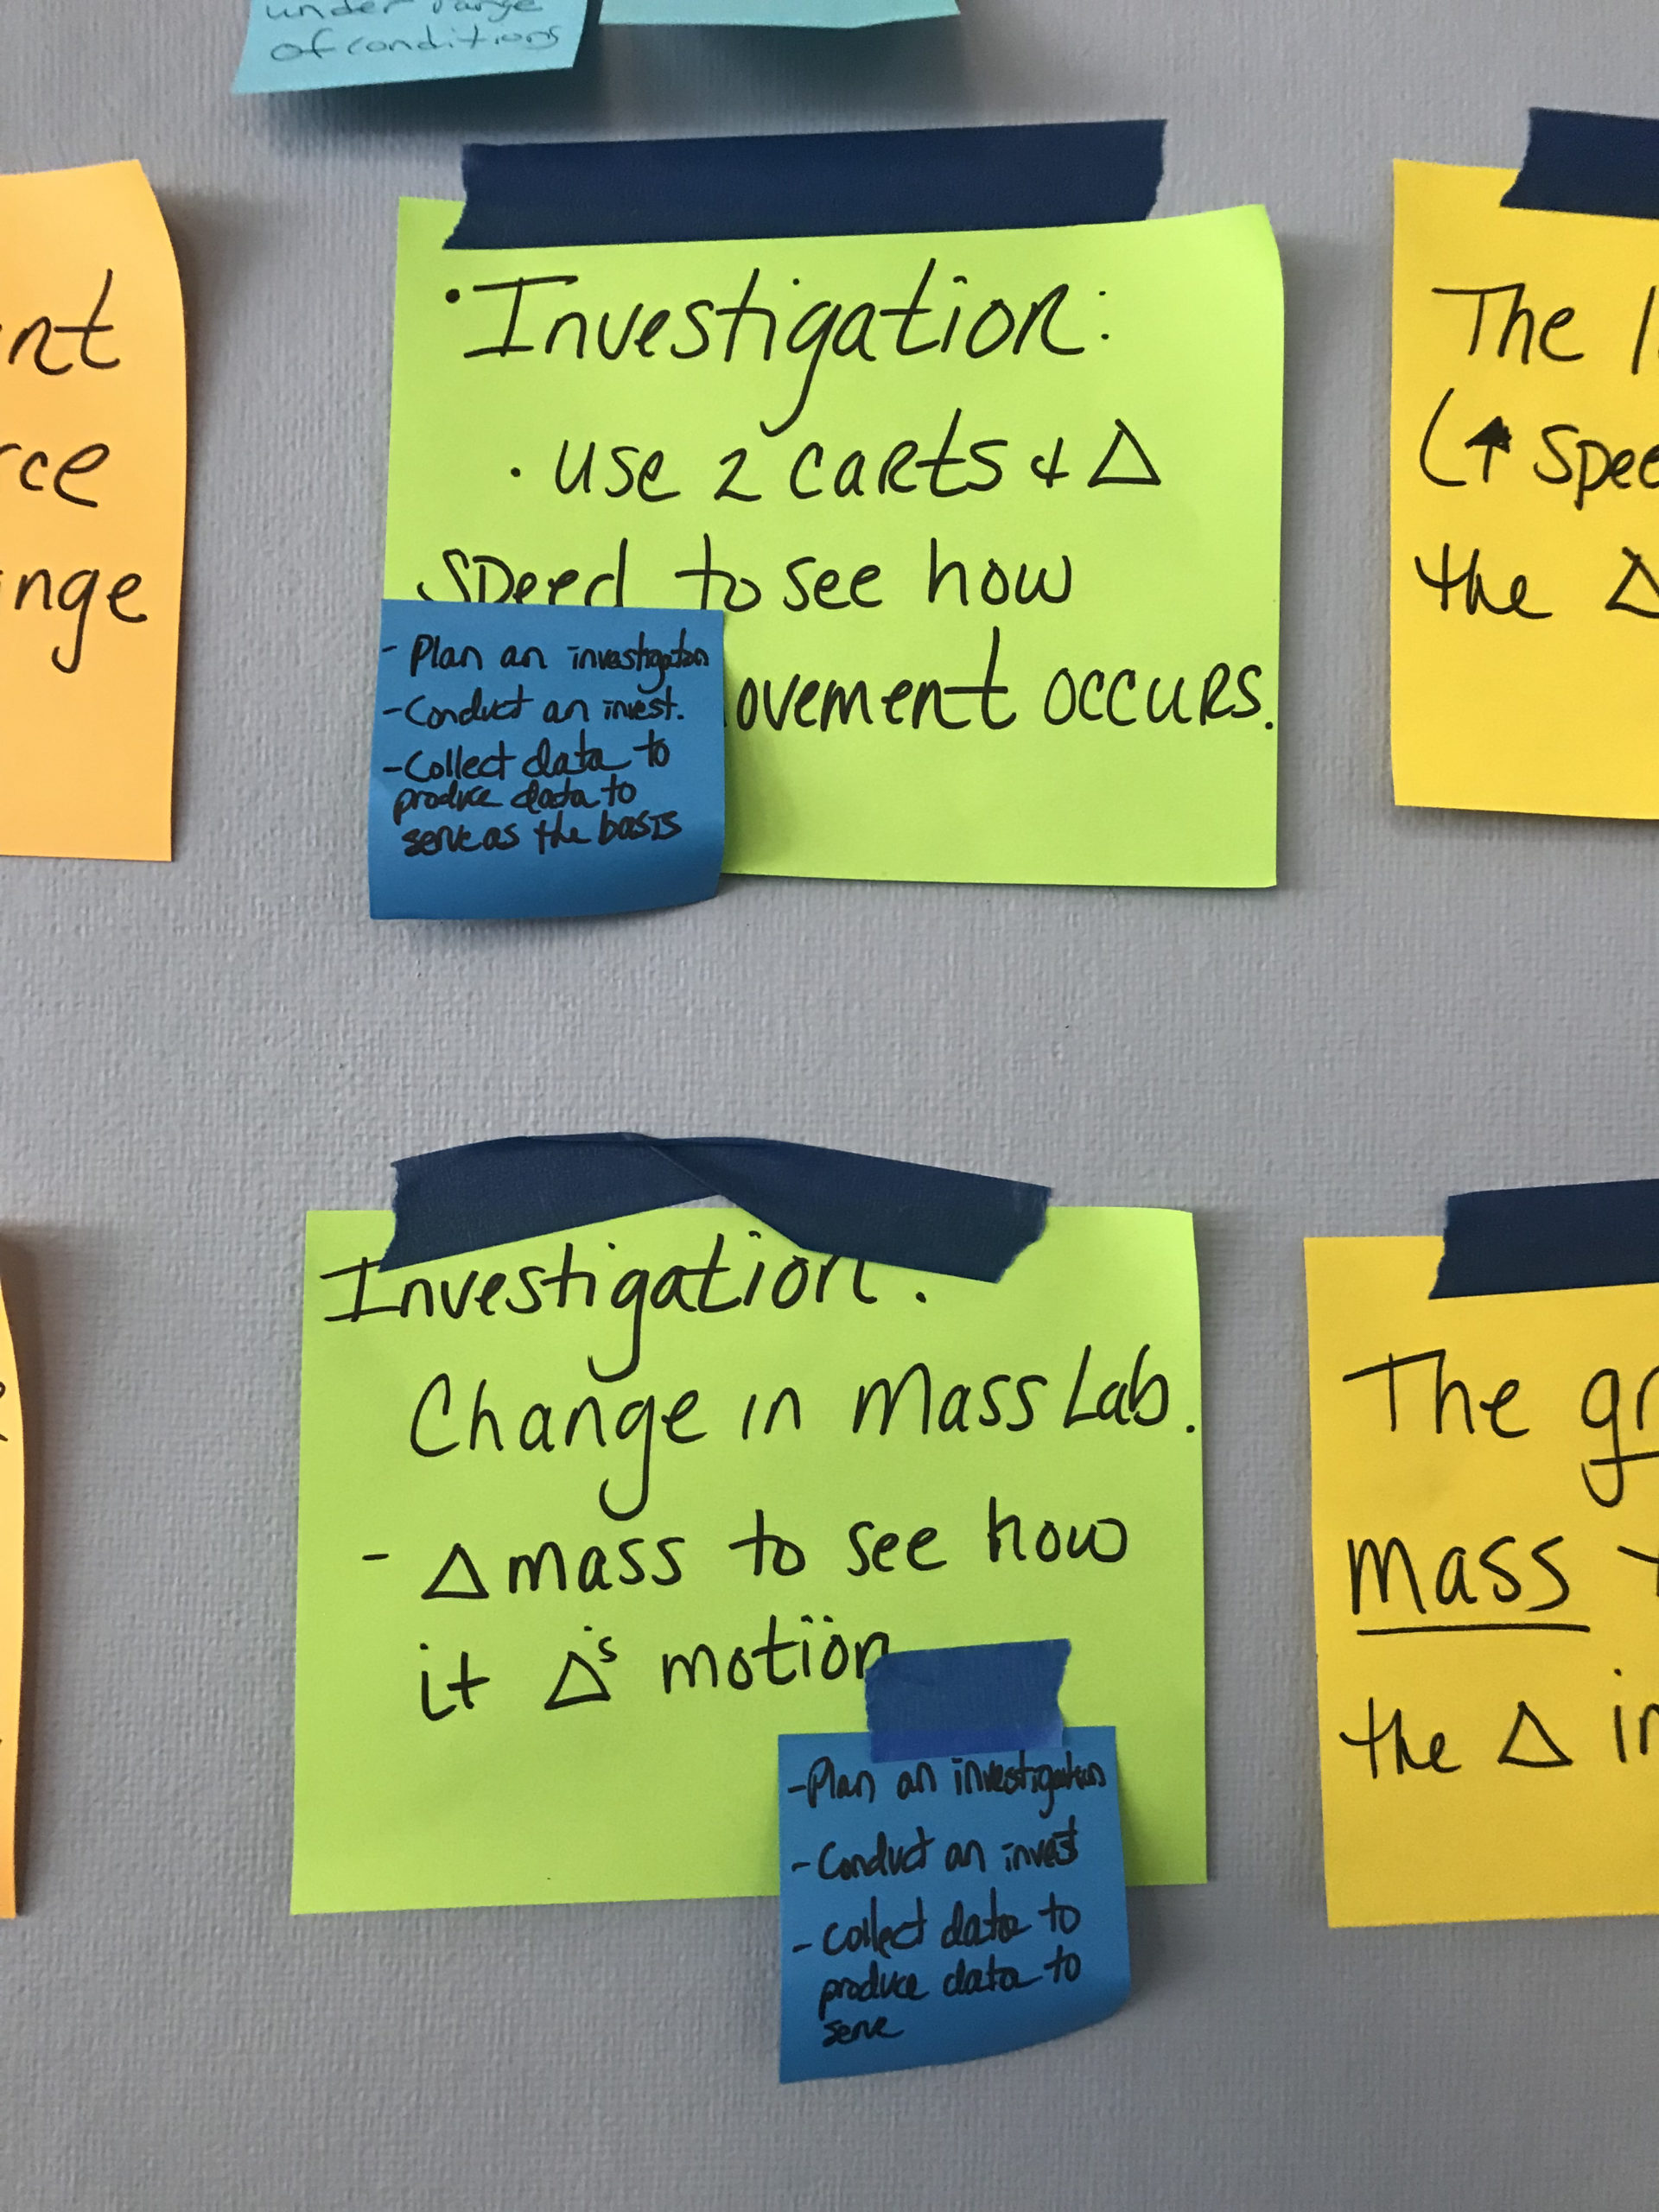 under range
of conditions
nt
rce
nge
• Investigation:
• use 2 carts & Δ
speed to see how
ovement occurs.
- Plan an investigation
- Conduct an invest.
- Collect data to
produce data to
serve as the basis
The
(↑ spee
the Δ
Investigation:
Change in Mass Lab.
- Δ mass to see how
it Δ's motion
- Plan an investigation
- Conduct an invest
- collect data to
produce data to
serve
The gr
mass
the Δ in